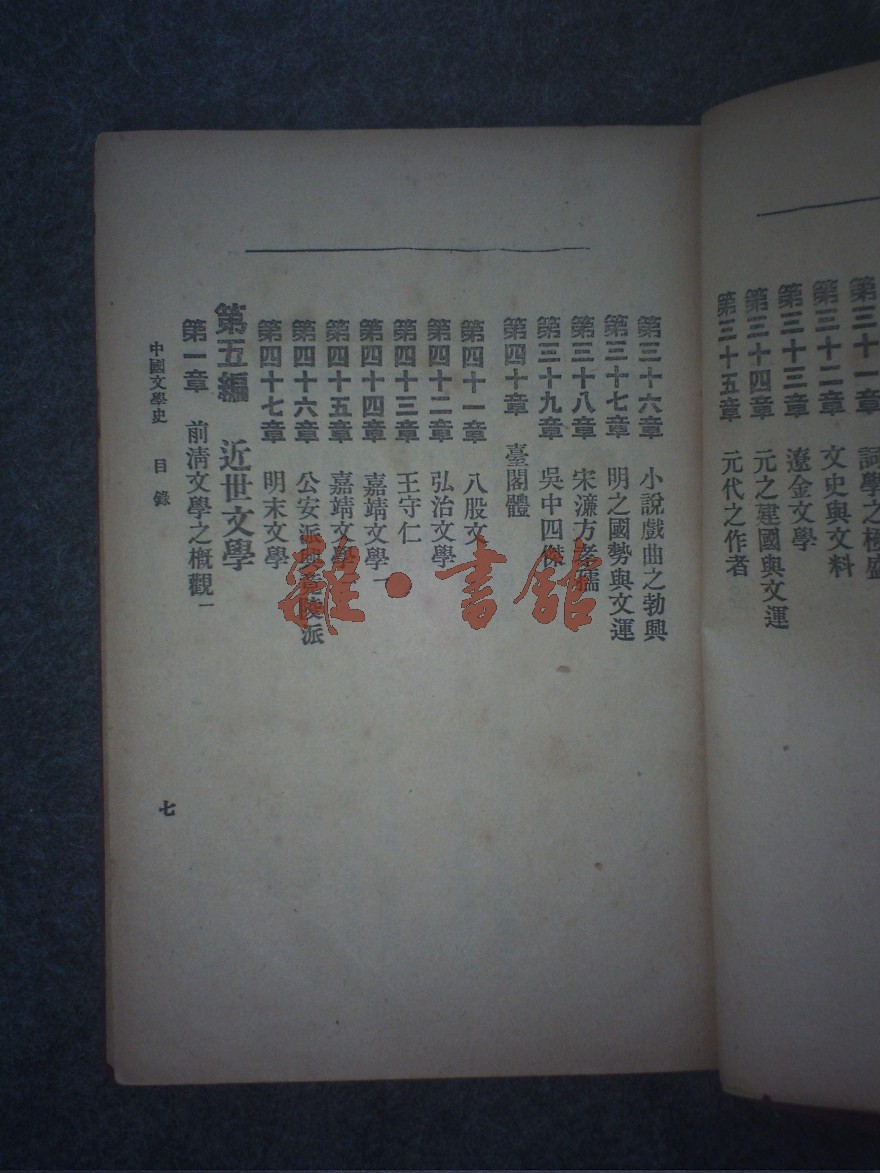 第三十一章 詞學之極盛
第三十二章 文史與文料
第三十三章 遼金文學
第三十四章 元之建國與文運
第三十五章 元代之作者
第三十六章 小說戲曲之勃興
第三十七章 明之國勢與文運
第三十八章 宋濂方孝孺
第三十九章 吳中四傑
第四十章 臺閣體
第四十一章 八股文
第四十二章 弘治文學
第四十三章 王守仁
第四十四章 嘉靖文學一
第四十五章 嘉靖文學
第四十六章 公安派與竟陵派
第四十七章 明末文學
第五編 近世文學
第一章 前清文學之概觀一
中國文學史 目錄
七
雜·書館